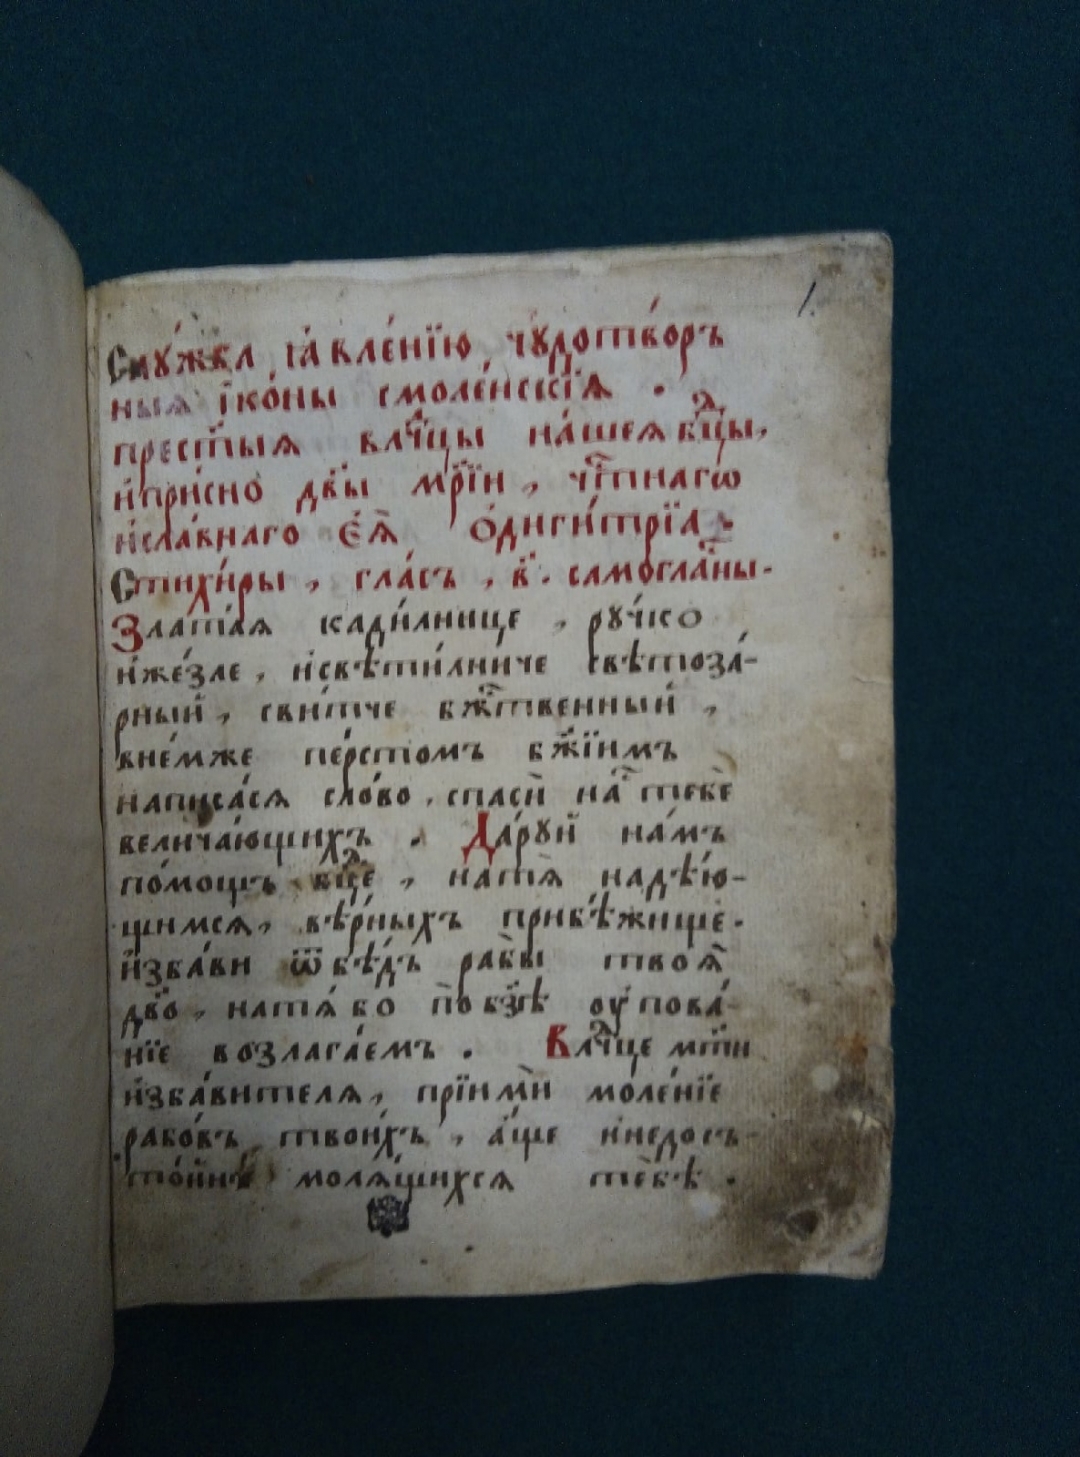 1.
Слꙋ́жба ꙗ҆вле́нїю чꙋдотво́р
ныѧ і҆ко́ны смоле́нскїѧ .
прест҃ы́ѧ влⷣчцы на́шеѧ бцⷣы,
и҆при́сно дв҃ы мр҃і́и, чⷭ҇тнагѡ
и҆сла́внаго є҆ѧ̀ О҆диги́трїа .
Стихи́ры, гла́съ, в҃. самогла́ⷭны.
Злата́ѧ кади́лнице, рꙋ́чко
и҆же́зле, и҆свѣти́лниче свѣтоза́-
рный, сви́тче бжⷭ҇твенный,
вне́мже пе́рстомъ бж҃їимъ
написа́сѧ сло́во, спасѝ наⷭ҇ тебѐ
велича́ющихъ . Да́рꙋй на́мъ
по́мощъ бцⷣе, натѧ̀ надѣ́ю-
щимсѧ, вѣ́рныхъ прибѣ́жище.
и҆зба́ви ѿбѣ́дъ рабы̀ твоѧ̀
дв҃о, натѧ́ бо по бз҃ѣ оу҆пова́-
нїе возлага́емъ . Влⷣчце мт҃и
и҆зба́вителѧ, прїимѝ моле́нїе
рабо́въ твои́хъ, а҆́ще и҆недосъ-
то́йнѣ молѧ́щихсѧ тебѣ̀ .